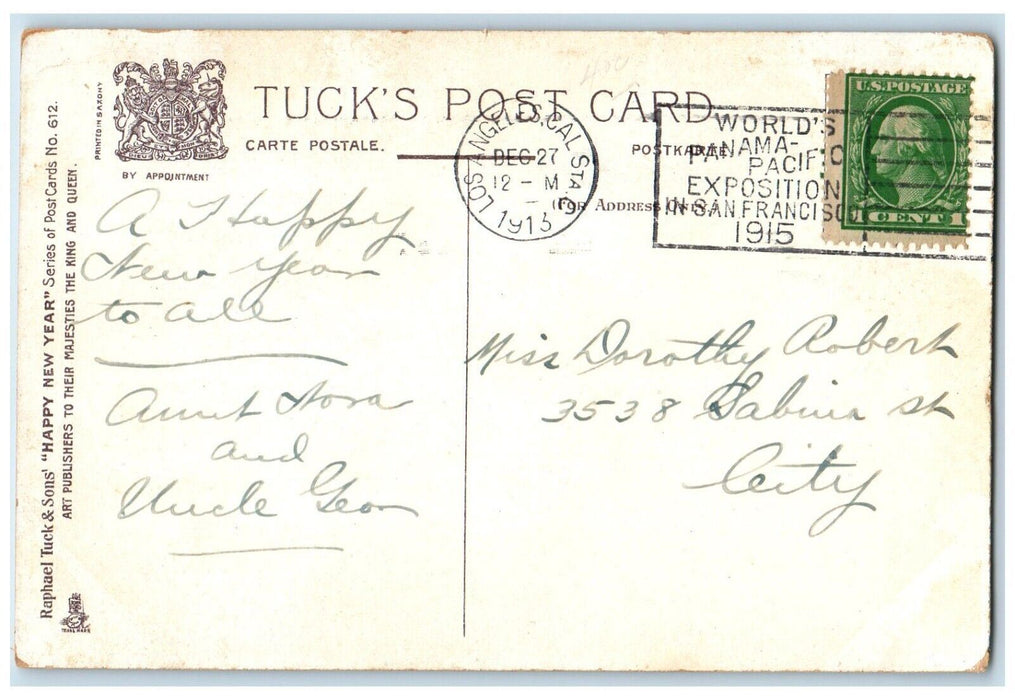 TUCK'S POST CARD
CARTE POSTALE.
POSTKARTE.
BY APPOINTMENT
PRINTED IN SAXONY
(FOR ADDRESS ONLY.)
Raphael Tuck & Sons' "HAPPY NEW YEAR" Series of Post Cards No. 612.
ART PUBLISHERS TO THEIR MAJESTIES THE KING AND QUEEN.
TRADE MARK
LOS ANGELES, CAL. STA. C
DEC 27
12 - M
1913
WORLD'S
PANAMA-
PACIFIC
EXPOSITION
IN SAN FRANCISCO
1915
U.S. POSTAGE
1 CENT 1
A Happy
New Year
to all
Aunt Nora
and
Uncle Geo
Miss Dorothy Robert
3538 Sabina st
City